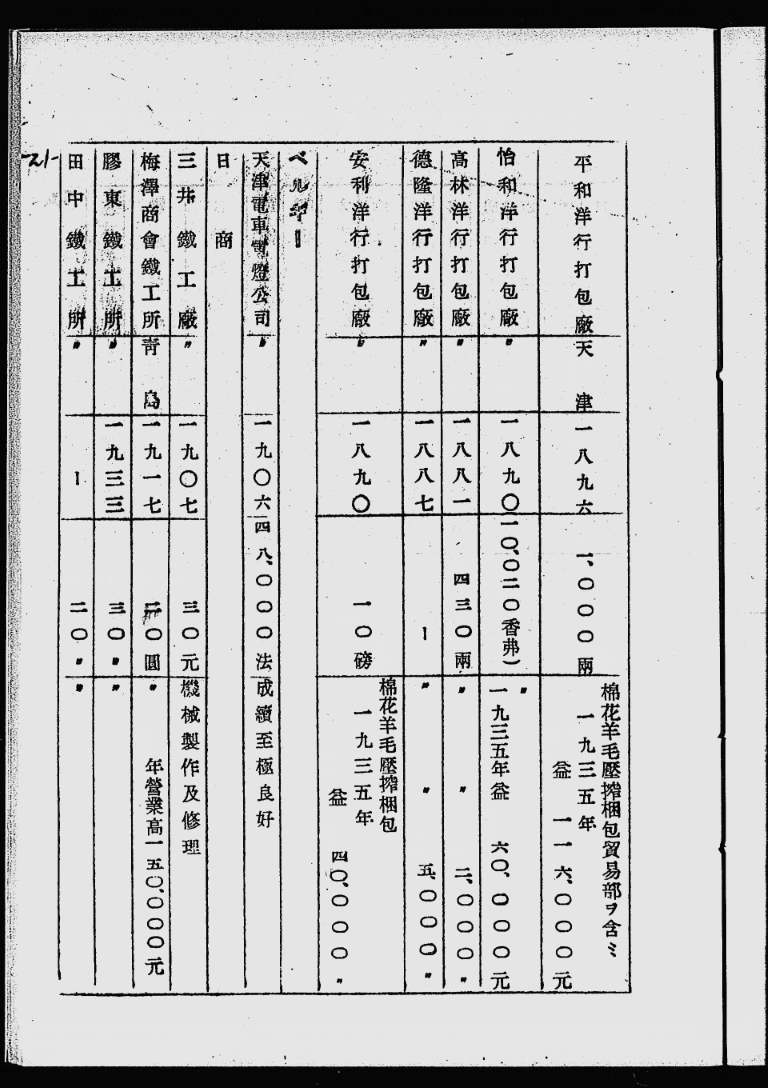 平和洋行打包廠 天津 一八九六 一、〇〇〇兩 棉花羊毛壓搾梱包貿易部ヲ含ミ
一九三五年
益 一一六、〇〇〇元
怡和洋行打包廠 〃 一八九〇 一〇、〇二〇香弗) 〃
一九三五年益 六〇、〇〇〇元
高林洋行打包廠 〃 一八八一 四三〇兩 〃 〃 二、〇〇〇〃
德隆洋行打包廠 〃 一八八七 ー 〃 〃 五、〇〇〇〃
安利洋行打包廠 〃 一八九〇 一〇磅 棉花羊毛壓搾梱包
一九三五年
益 四〇、〇〇〇〃
天津電車電燈公司 〃 一九〇六 四八、〇〇〇法 成績至極良好
日商
三井鐵工廠 〃 一九〇七 三〇元 機械製作及修理
梅澤商會鐵工所 青島 一九一七 〇圓 〃 年營業高一五〇、〇〇〇元
膠東鐵工所 〃 一九三三 三〇〃 〃
田中鐵工所 〃 ー 二〇〃 〃